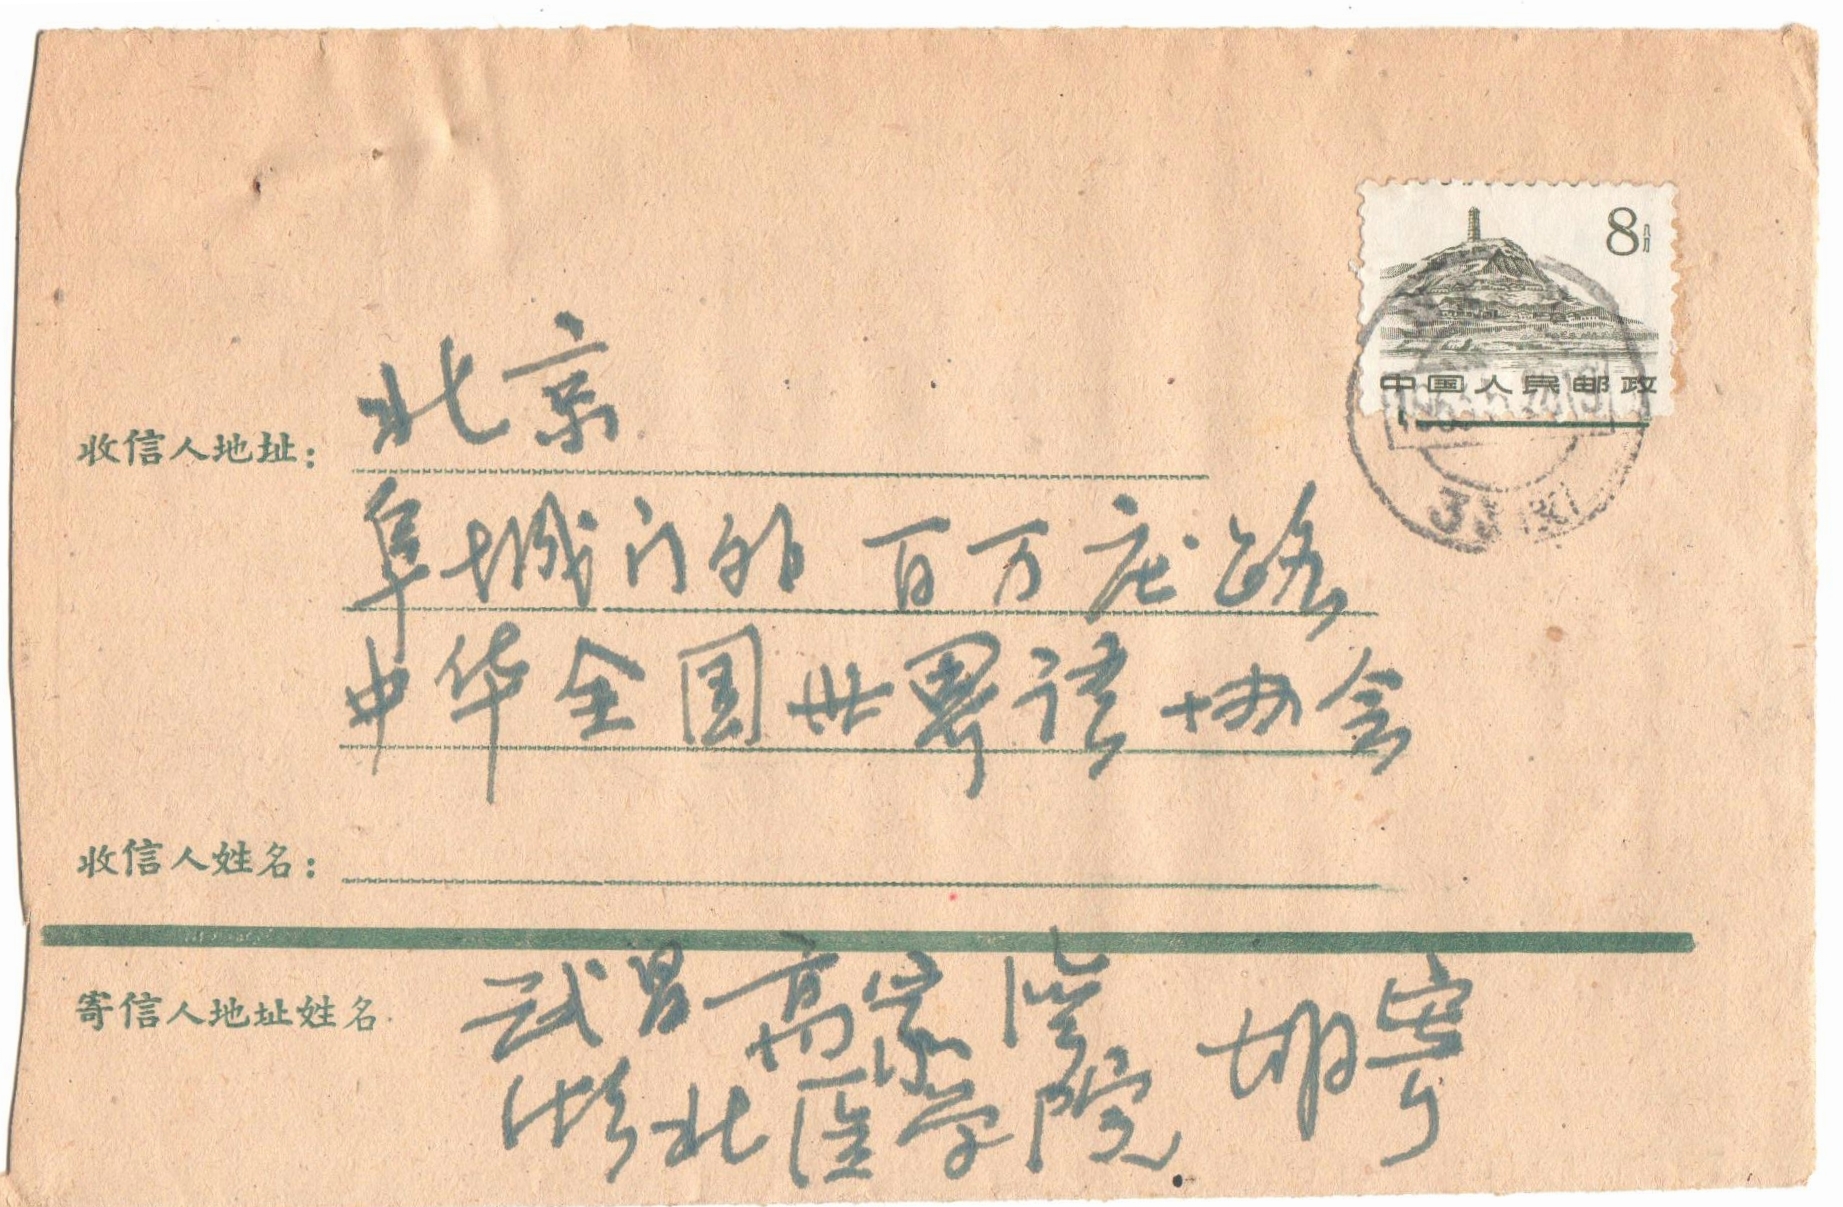 8分
中国人民邮政
收信人地址:
北京
阜城门外 百万庄路
中华全国世界语协会
收信人姓名:
寄信人地址姓名.
武昌高家湾
湖北医学院 胡寄